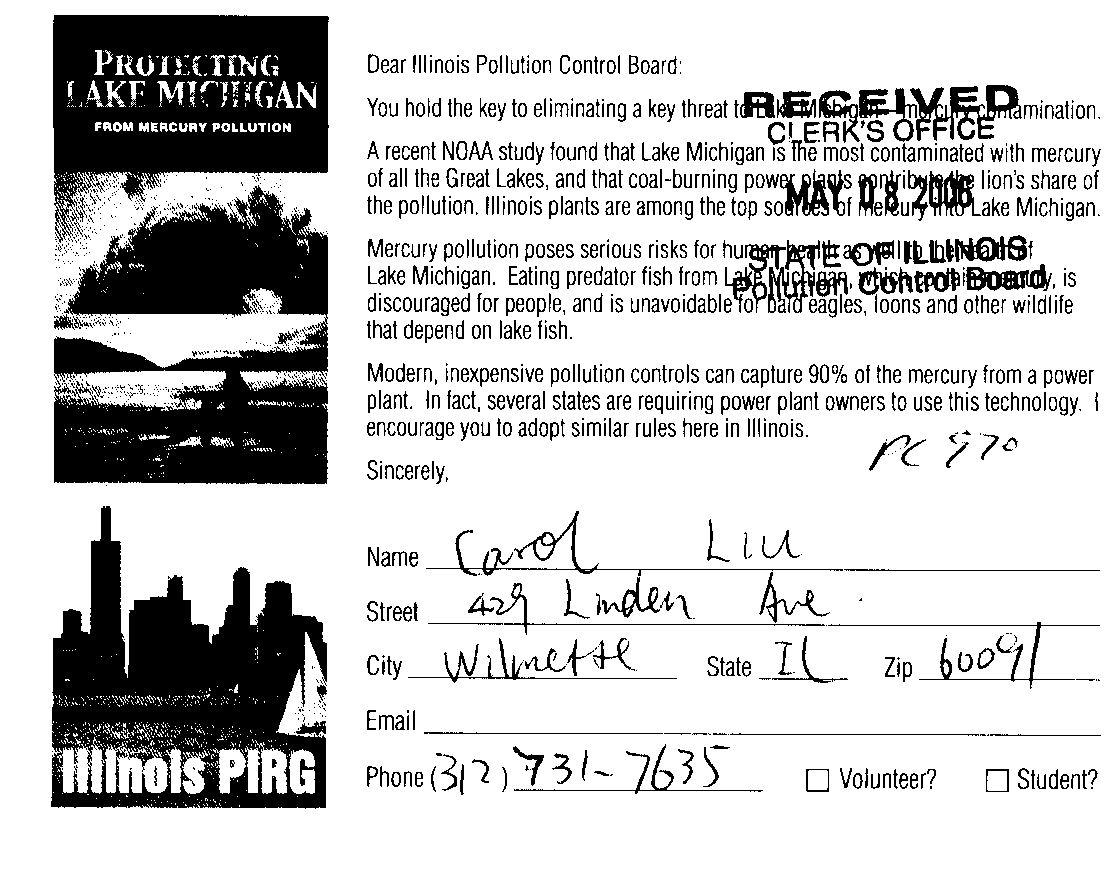 PROTECTING
LAKE MICHIGAN
FROM MERCURY POLLUTION
Illinois PIRG
Dear Illinois Pollution Control Board:
You hold the key to eliminating a key threat to Lake Michigan – mercury contamination.
A recent NOAA study found that Lake Michigan is the most contaminated with mercury
of all the Great Lakes, and that coal-burning power plants contribute the lion's share of
the pollution. Illinois plants are among the top sources of mercury into Lake Michigan.
Mercury pollution poses serious risks for human health as well to the health of
Lake Michigan. Eating predator fish from Lake Michigan, which contain mercury, is
discouraged for people, and is unavoidable for bald eagles, loons and other wildlife
that depend on lake fish.
Modern, inexpensive pollution controls can capture 90% of the mercury from a power
plant. In fact, several states are requiring power plant owners to use this technology. I
encourage you to adopt similar rules here in Illinois.
Sincerely,
RECEIVED
CLERK'S OFFICE
MAY 08 2006
STATE OF ILLINOIS
Pollution Control Board
PC 970
Name Carol Liu
Street 429 Linden Ave.
City Wilmette State IL Zip 60091
Email
Phone (312) 731-7635 Volunteer? Student?